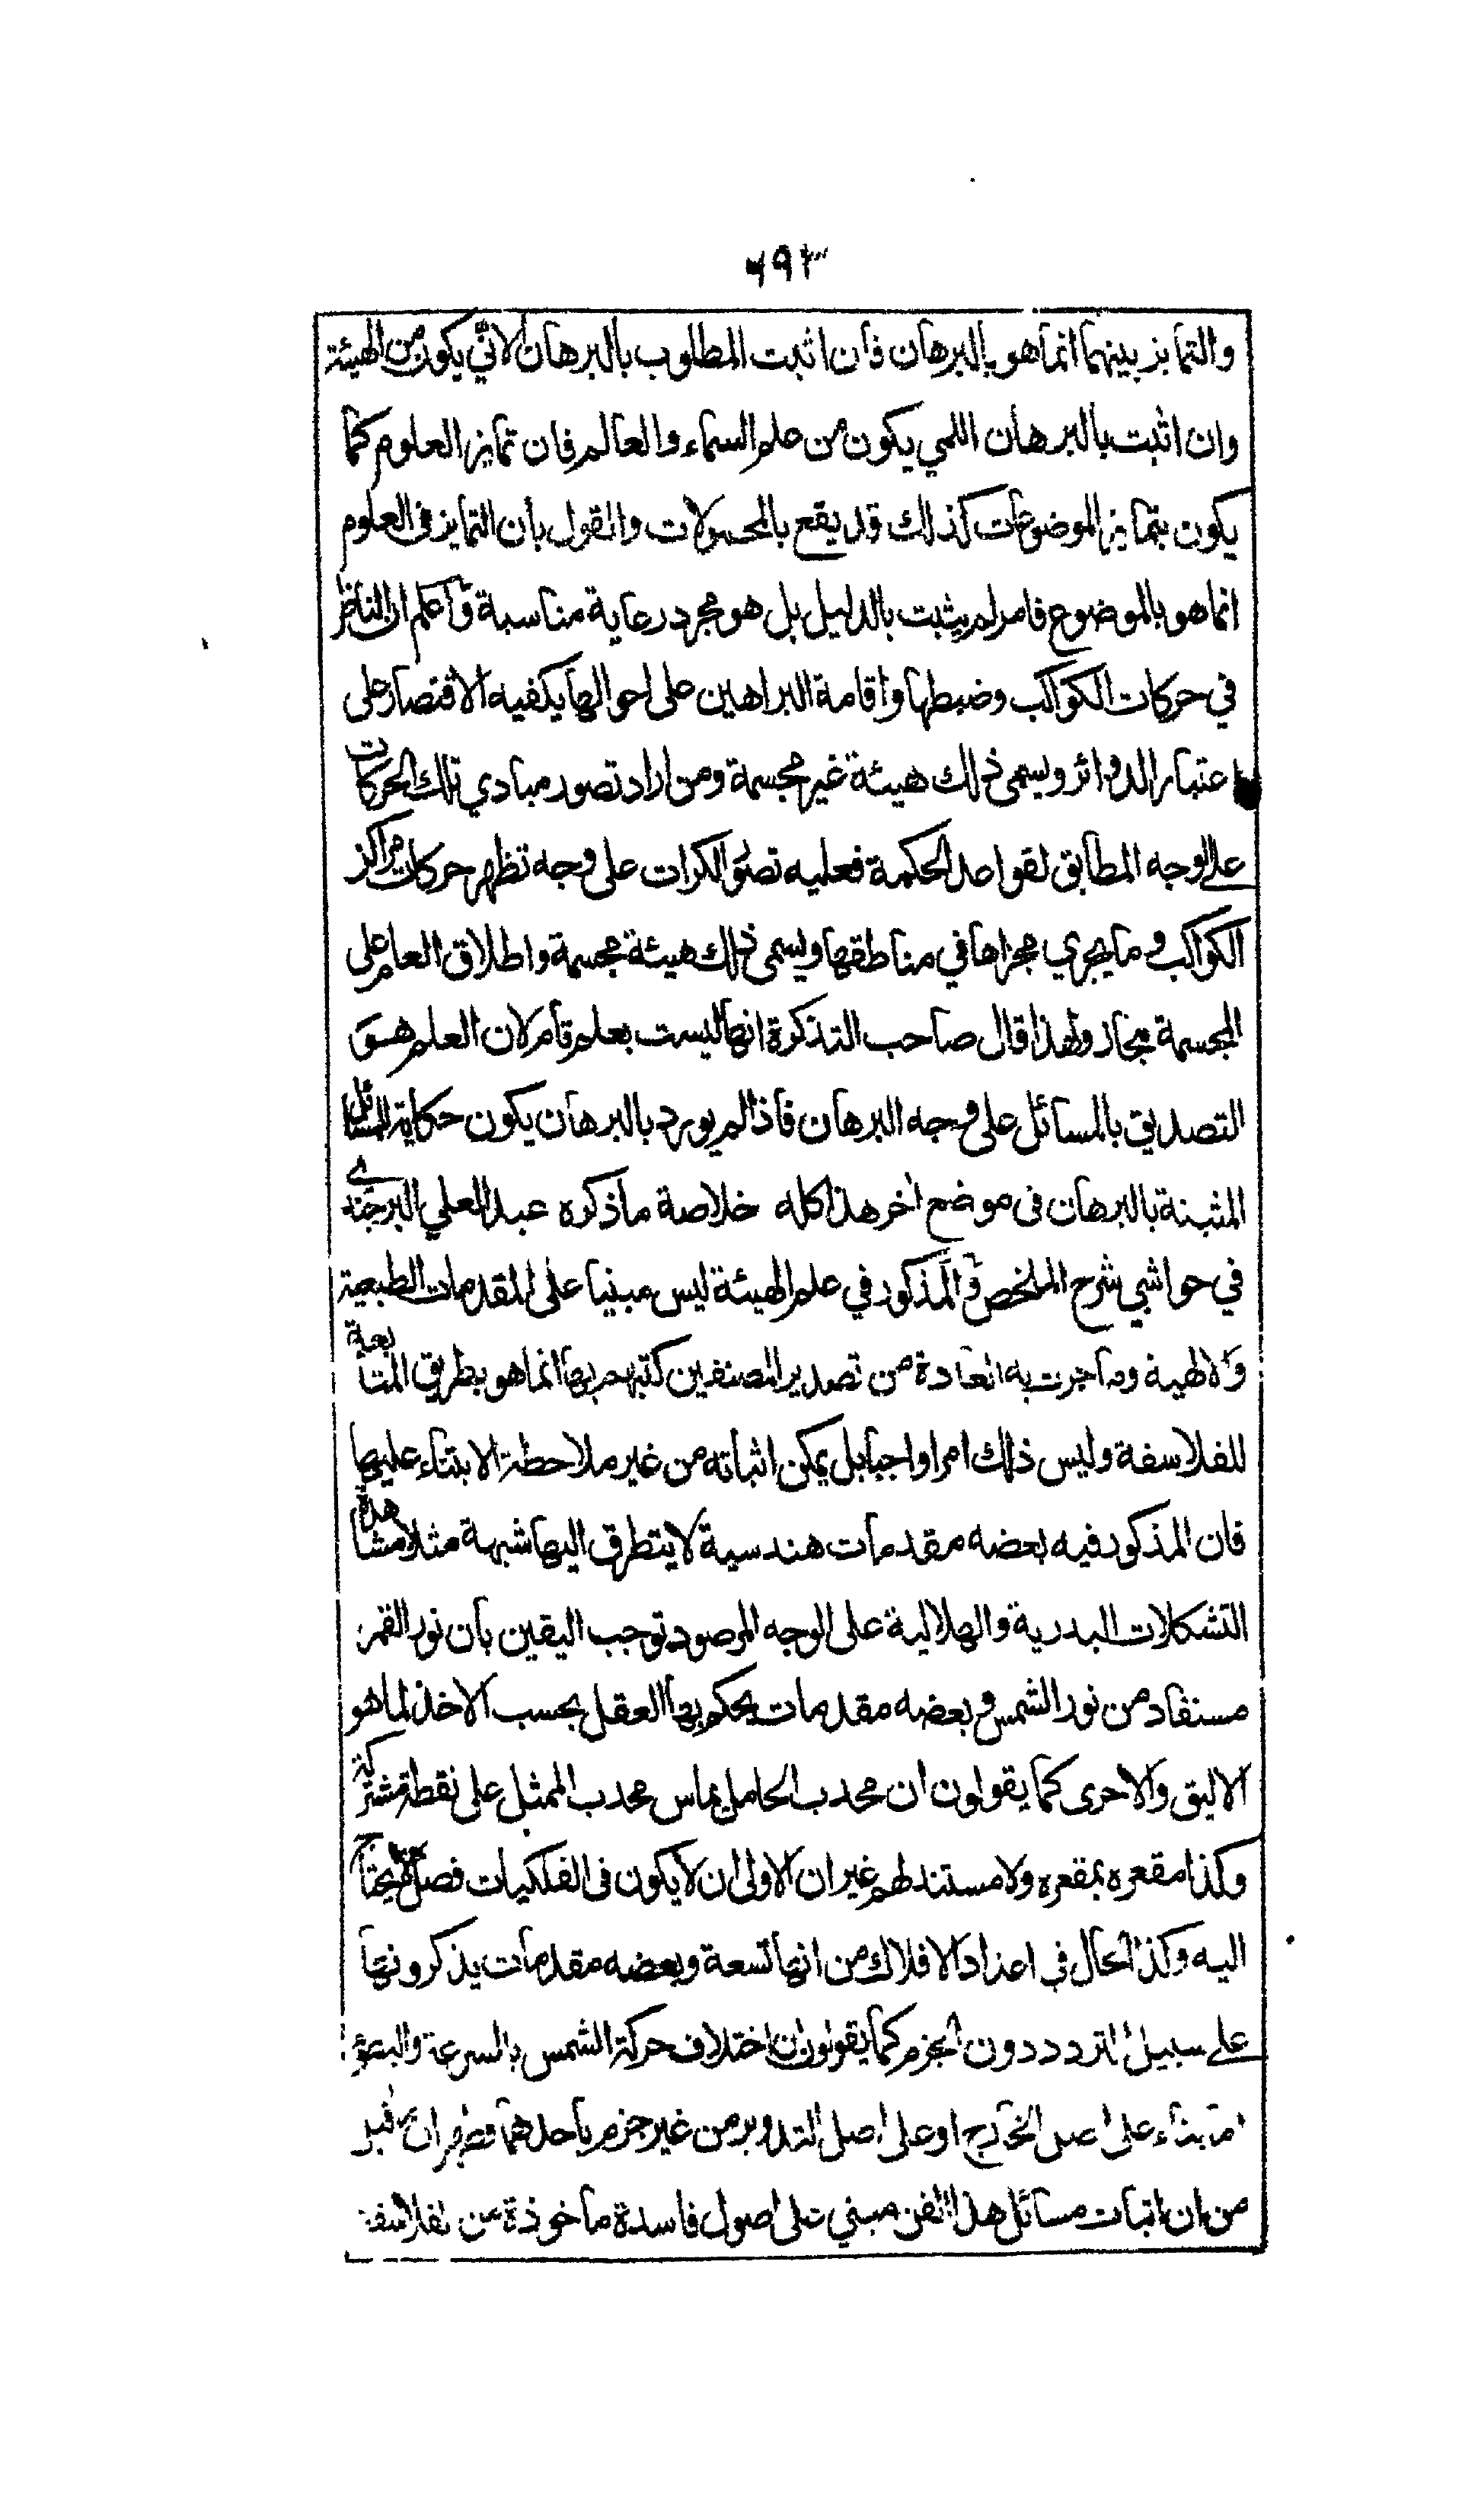 ٦٩٣
والتمايز بينهما انما هو بالبرهان فان اثبت المطلوب بالبرهان الانّي يكون من الهيئة
وان اثبت بالبرهان اللمي يكون من علم السماء والعالم فان تمايز العلوم كما
يكون بتمايز الموضوعات كذلك قد يقع بالمحمولات والقول بان التمايز فى العلوم
انما هو بالموضوع فامر لم يثبت بالدليل بل هو مجرد رعاية مناسبة واعلم ان الناظر
في حركات الكواكب وضبطها واقامة البراهين على احوالها يكفيه الاقتصار على
اعتبار الدوائر ويسمى ذلك هيئة غير مجسمة ومن اراد تصور مبادي تلك الحركات
على الوجه المطابق لقواعد الحكمة فعليه تصور الكرات على وجه تظهر حركات مراكز
الكواكب وما يجري مجراها في مناطقها ويسمى ذلك هيئة مجسمة واطلاق العلم على
المجسمة مجاز ولهذا قال صاحب التذكرة انها ليست بعلم تام لان العلم هو
التصديق بالمسائل على وجه البرهان فاذا لم يورد بالبرهان يكون حكاية للمسائل
المثبتة بالبرهان فى موضع اخر هذا كله خلاصة ما ذكره عبد العلي البرجندي
في حواشي شرح الملخص والمذكور في علم الهيئة ليس مبنيا على المقدمات الطبعية
والالهية وما جرت به العادة من تصدير المصنفين كتبهم بها انما هو بطريق المتابعة
للفلاسفة وليس ذلك امرا واجبا بل يمكن اثباته من غير ملاحظة الابتناء عليها
فان المذكور فيه بعضه مقدمات هندسية لا يتطرق اليها شبهة مثلا مشاهدة
التشكلات البدرية والهلالية على الوجه المرصود توجب اليقين بان نور القمر
مستفاد من نور الشمس وبعضه مقدمات يحكم بها العقل بحسب الاخذ لما هو
الاليق والاحرى كما يقولون ان محدب الحامل يماس محدب الممثل على نقطة مشتركة
وكذا مقعره بمقعره ولا مستند لهم غير ان الاولى ان لا يكون فى الفلكيات فصل لا يحتاج
اليه وكذا الحال في اعداد الافلاك من انها تسعة وبعضه مقدمات يذكرونها
على سبيل التردد دون الجزم كما يقولون ان اختلاف حركة الشمس بالسرعة والبطؤ
اما بناء على اصل الخارج او على اصل التدوير من غير جزم باحدهما فظهر ان ما قيل
من ان اثبات مسائل هذا الفن مبني على اصول فاسدة ماخوذة من الفلاسفة